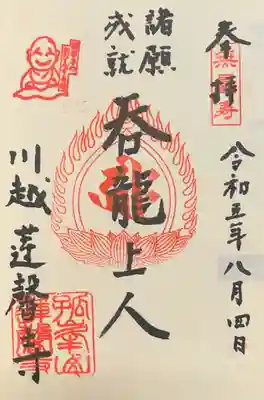 奉拝
令和五年八月四日
諸願
成就
呑龍上人
川越 蓮馨寺
孤峯山
蓮馨寺